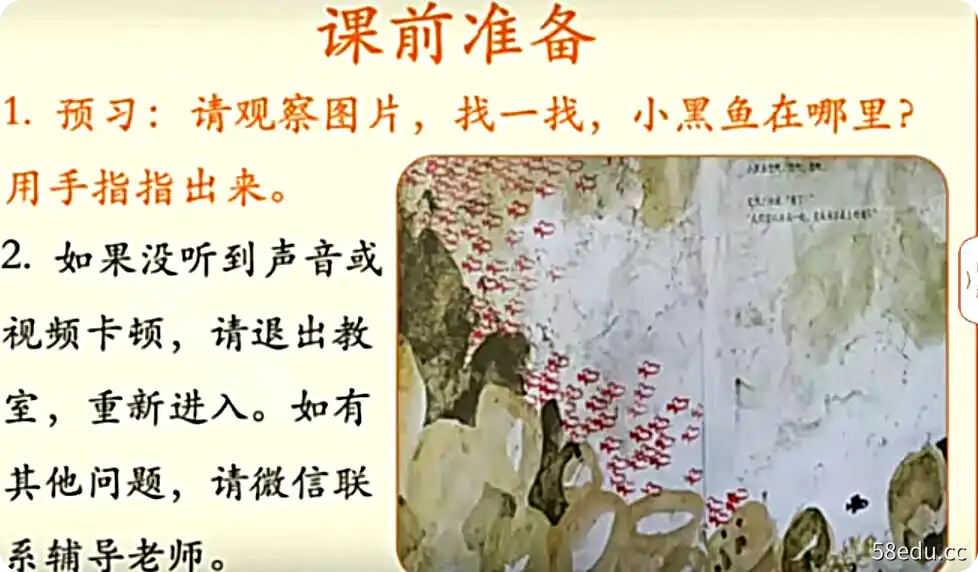 课前准备
1. 预习：请观察图片，找一找，小黑鱼在哪里？
用手指指出来。
2. 如果没听到声音或
视频卡顿，请退出教
室，重新进入。如有
其他问题，请微信联
系辅导老师。
58edu.cc